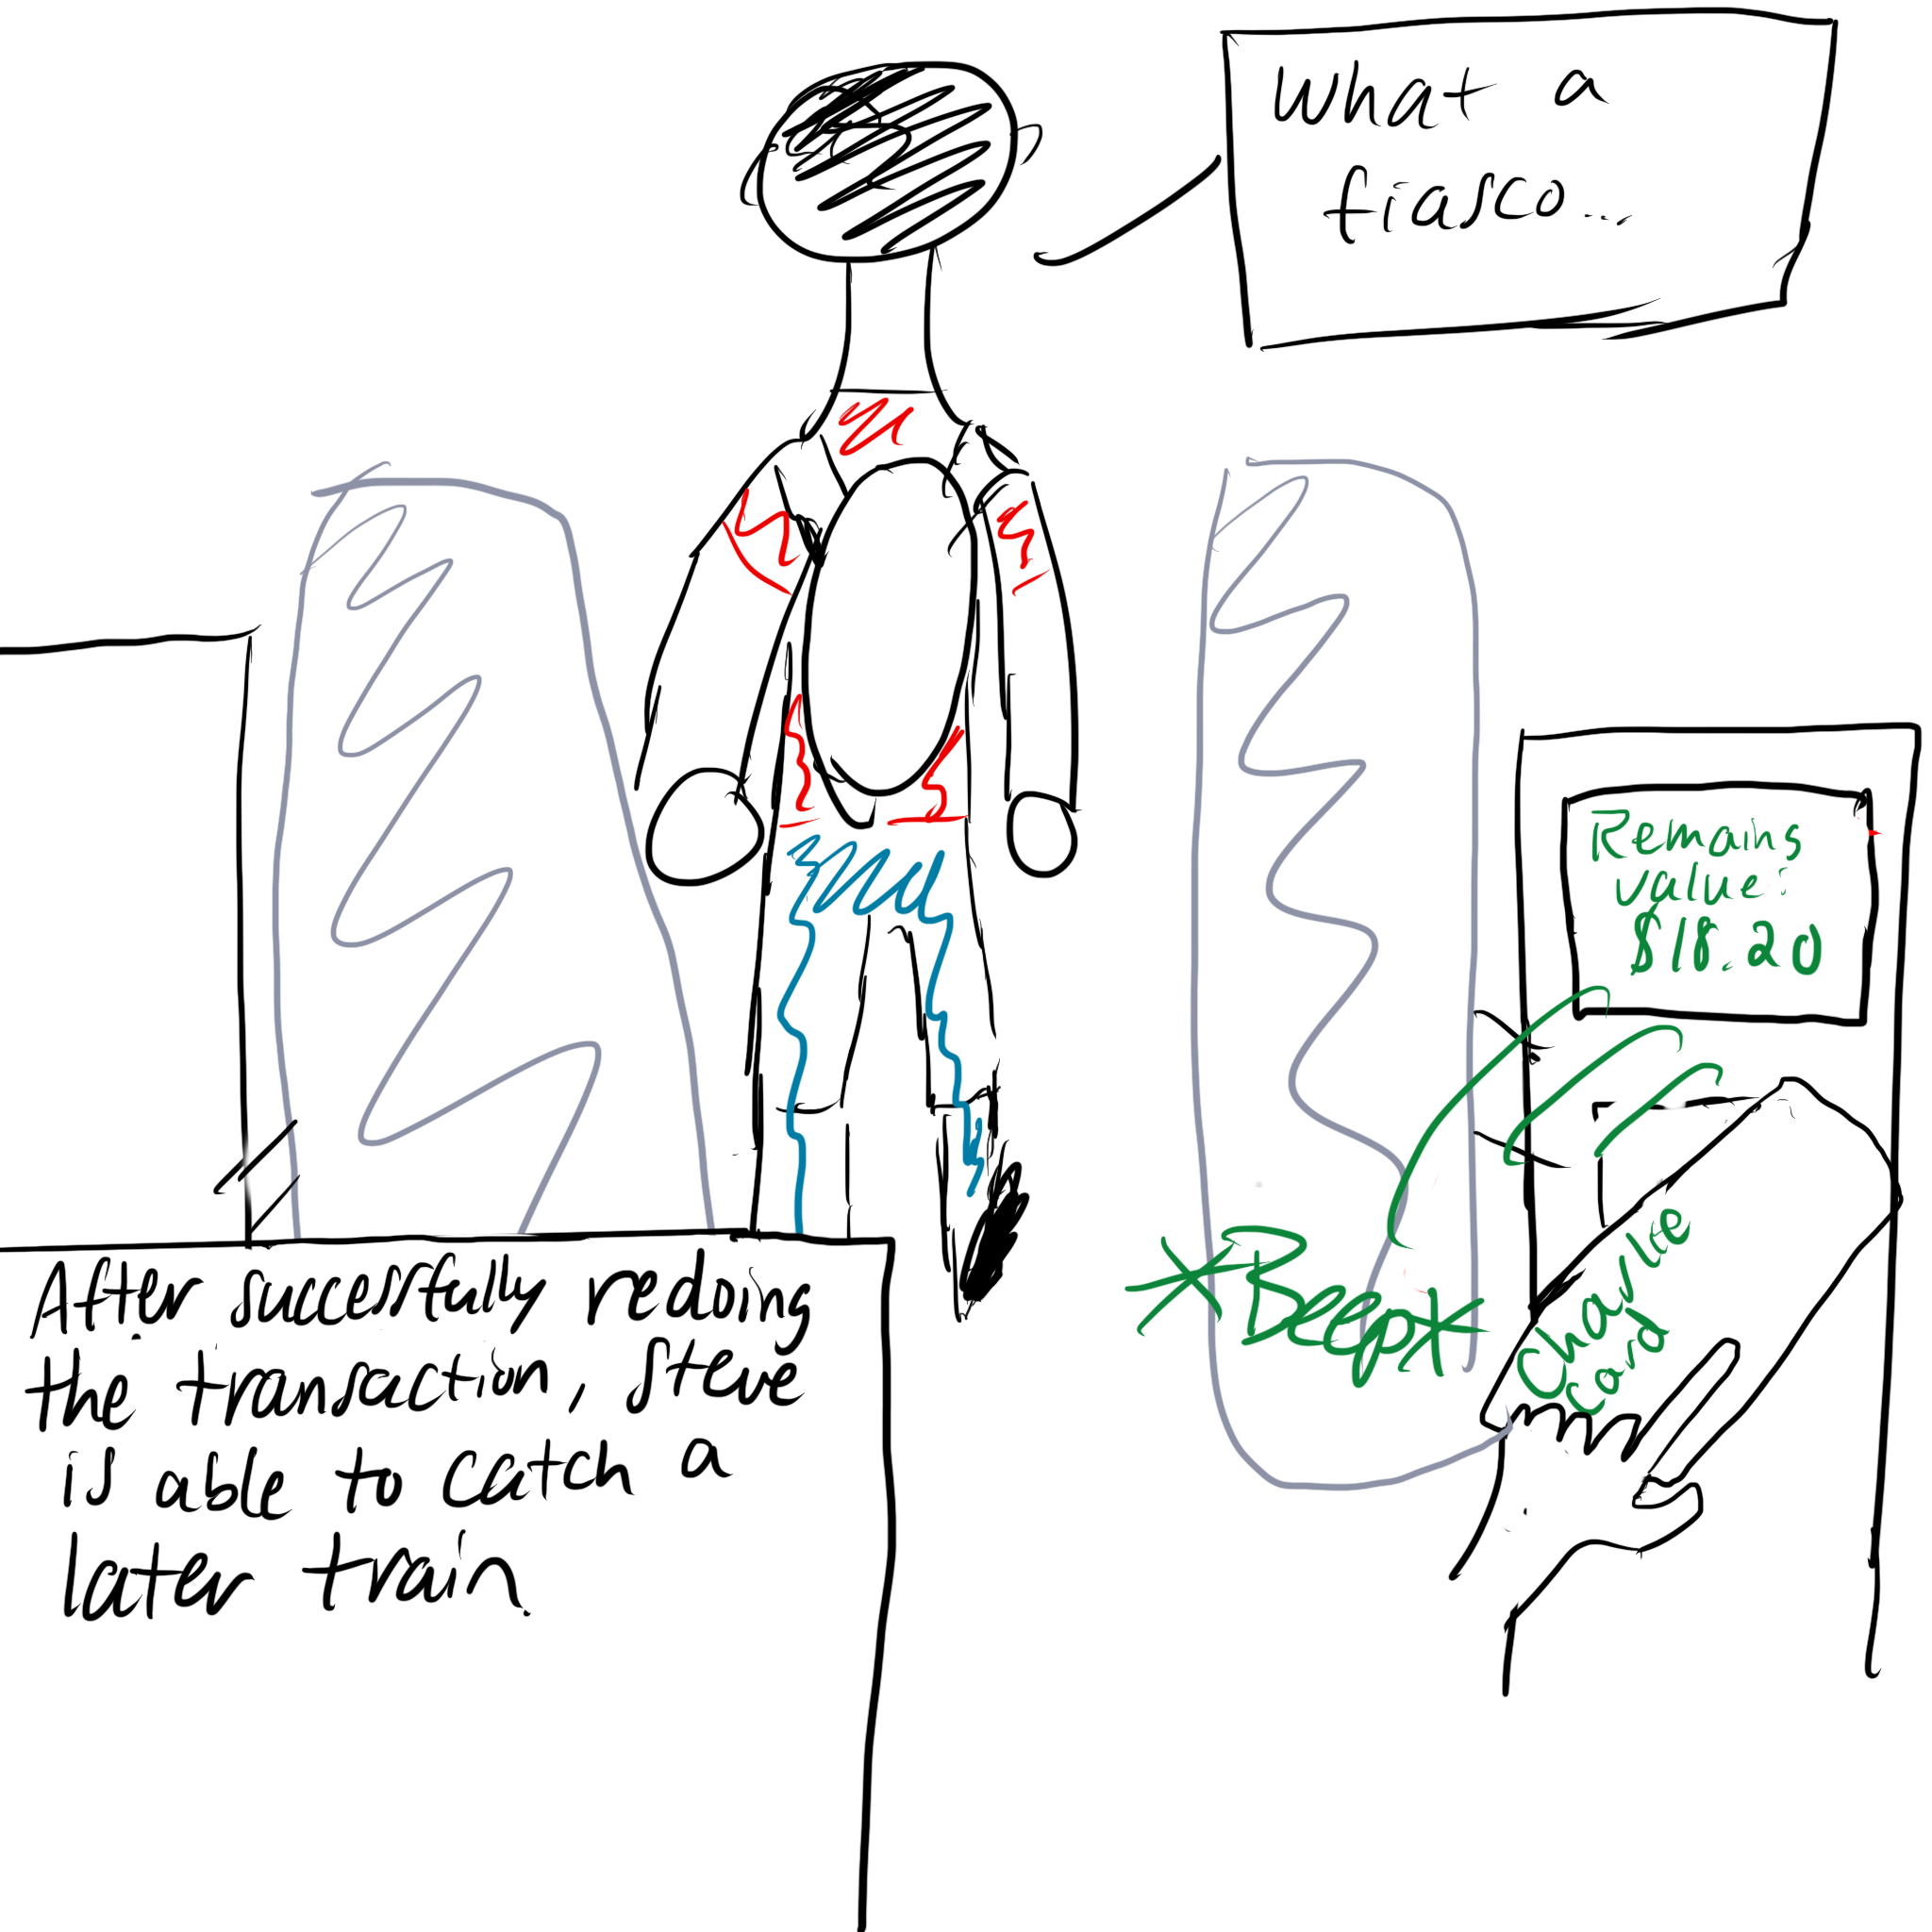 What a
fiasco...
Remains
value:
$18.20
*Beep*
Charlie
Card
After sucessfully redoing
the transaction, Steve
is able to catch a
later train.